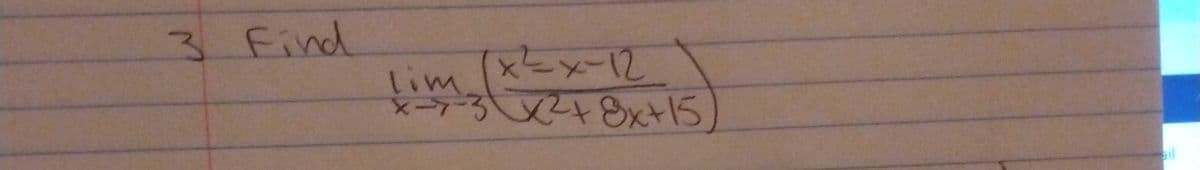 3 Find
lim x→-3 (x²-x-12 / x²+8x+15)
ail